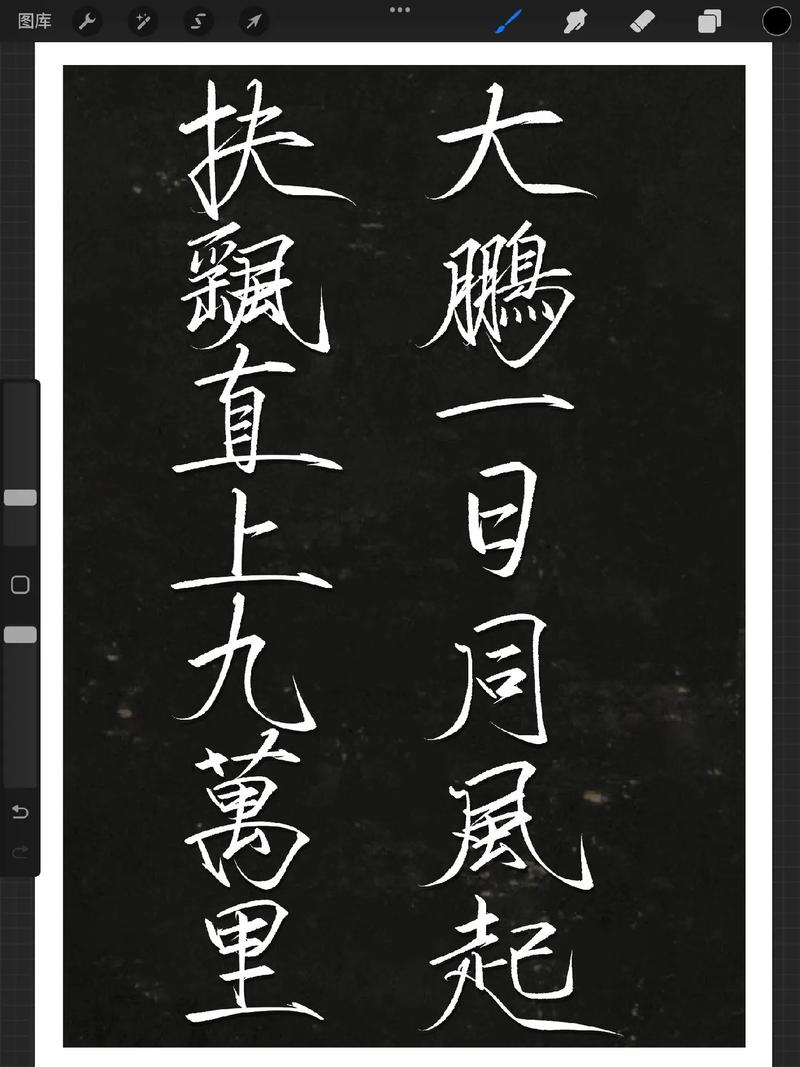 图库
大鵬一日同風起
扶飄直上九萬里